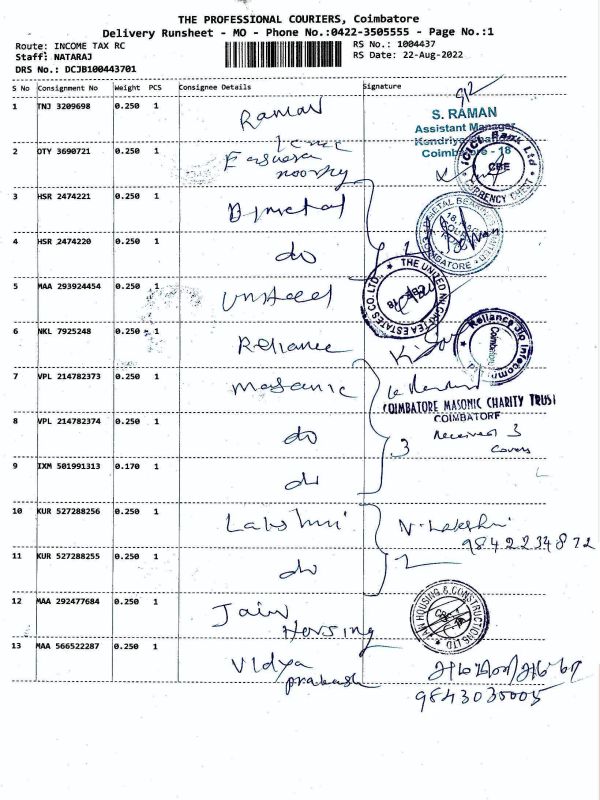 THE PROFESSIONAL COURIERS, Coimbatore
Delivery Runsheet - MO - Phone No.:0422-3505555 - Page No.:1
Route: INCOME TAX RC
Staff: NATARAJ
DRS No.: DCJB100443701
RS No.: 1004437
RS Date: 22-Aug-2022
S No Consignment No Weight PCS Consignee Details Signature
1 TNJ 3209698 0.250 1 Raman
S. RAMAN
Assistant Manager
Coimbatore - 18
2 OTY 3690721 0.250 1 Easwara
moorthy
ICICI Bank Ltd
CBE
CURRENCY CHEST
3 HSR 2474221 0.250 1
4 HSR 2474220 0.250 1 do
COIMBATORE
2
5 MAA 293924454 0.250 1 United
THE UNITED NILGIRI TEA ESTATES CO. LTD.
6 NKL 7925248 0.250 1 Reliance
Reliance Jio Infocomm
Coimbatore
7 VPL 214782373 0.250 1 Masonic
COIMBATORE MASONIC CHARITY TRUST
COIMBATORE
8 VPL 214782374 0.250 1 do
3
Received 3
Covers
9 IXM 501991313 0.170 1 do
10 KUR 527288256 0.250 1 Lakshmi
N. Lakshmi
9842234872
11 KUR 527288255 0.250 1 do
2
12 MAA 292477684 0.250 1 Jain
Housing
JAIN HOUSING & CONSTRUCTIONS LTD
CBE-18
13 MAA 566522287 0.250 1 Vidya
prakash
9843035005